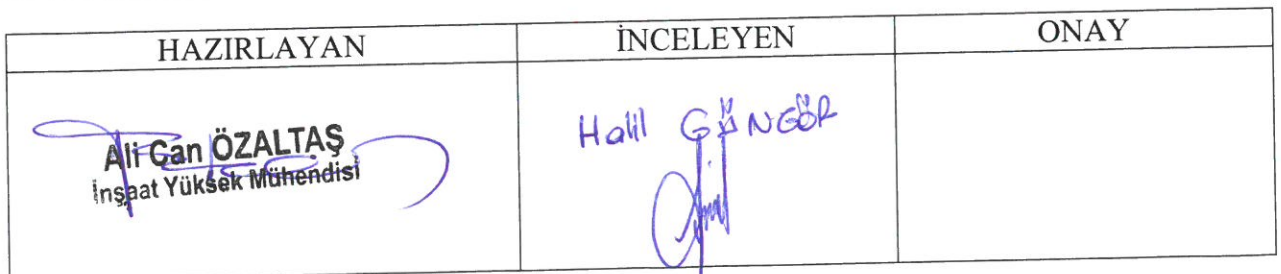 HAZIRLAYAN
İNCELEYEN
ONAY
Ali Can ÖZALTAŞ
İnşaat Yüksek Mühendisi
Halil GÜNGÖR